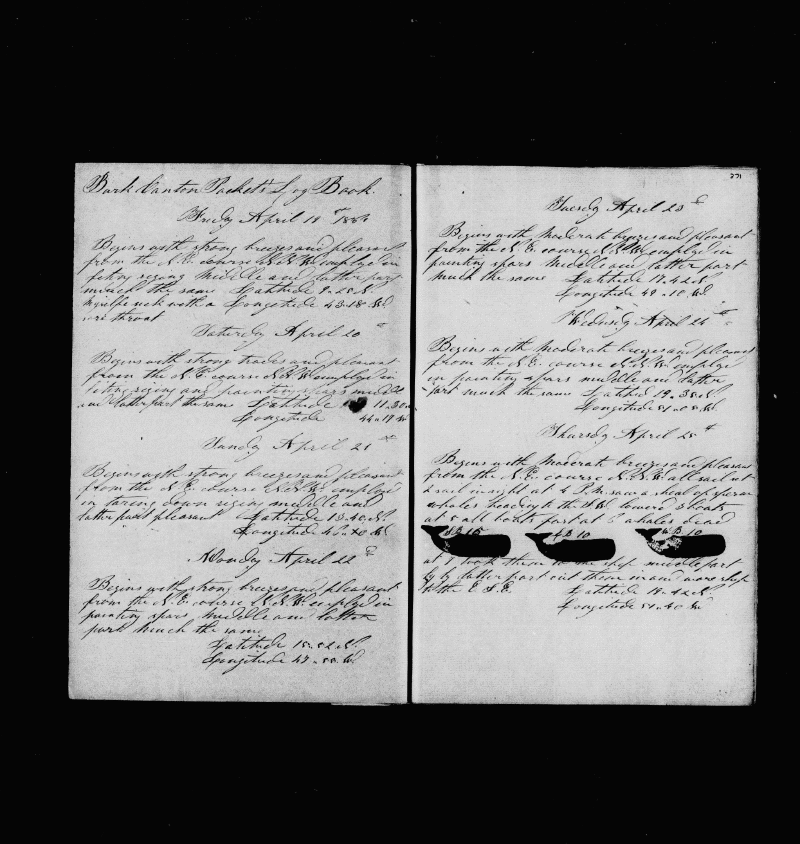 Bark Canton Packet's Log Book.
Friday April 19th 188
Begins with strong breezes and pleasant
from the N.E. course N.N.W. employed in
fixing riging middle and latter part
much the same Latitude 9-25 N.
myselfe sick with a Longitude 43-18 W
sore throat
Saturday April 20
Begins with strong trades and pleasant
from the N.E. course N.N.W. employed in
riging and painting spars middle
and latter part the same Latitude 11-30 N
Longitude 44-17 W
Sunday April 21st
Begins with strong breezes and pleasant
from the N.E. course N.N.W. employed
in taring down riging middle and
latter part pleasant Latitude 13-40 N.
Longitude 45-40 W
Monday April 22d
Begins with strong breezes and pleasant
from the N.E. course N.N.W. employed in
painting spars middle and latter
part much the same
Latitude 15-52 N.
Longitude 47-55 W.
271
Tuesdy April 23d
Begins with moderate breezes and pleasant
from the N.E. course N.N.W. employed in
painting spars middle and latter part
much the same Latitude 17-42 N
Longitude 49-10 W.
Wednesdy April 24th
Begins with moderate breezes and pleasant
from the N.E. course N.N.W. employe
in painting spars middle and latter
part much the same Latitud 19-35 N.
Longitude 51-05 W.
Thursdy April 25th
Begins with moderate breezes and pleasan
from the N.E. course N.N.W. all sail out
a sail in sight at 4 P.M. saw a shoal of sperm
whales heading to the lowered 3 boats
at 5 all boats fast at 6 whales dead
10 10 10
at 7 took them to the ship middle part
by latter part cut them in and ship
to the E.S.E. Latitude 19-42 N
Longitude 51-40 W